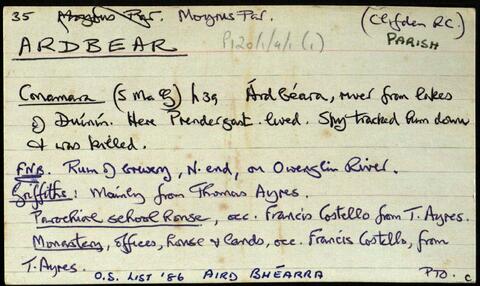 35 Moyrus Par. Moyrus Par. (Clifden R.C.)
ARDBEAR P120/1/9/1 (1) PARISH
Conamara (S Mac G) h39 Árd Béara, river from lakes
of Duinín. Here Prendergast lived. Spy tracked him down
& was killed.
FNB. Ruin of brewery, N. end, on Owenglin River.
Griffiths: Mainly from Thomas Ayres.
Parochial school house, occ. Francis Costello from T. Ayres.
Monastery, offices, house & lands, occ. Francis Costello, from
T. Ayres.
O.S. LIST '86 AIRD BHÉARRA PTO. C